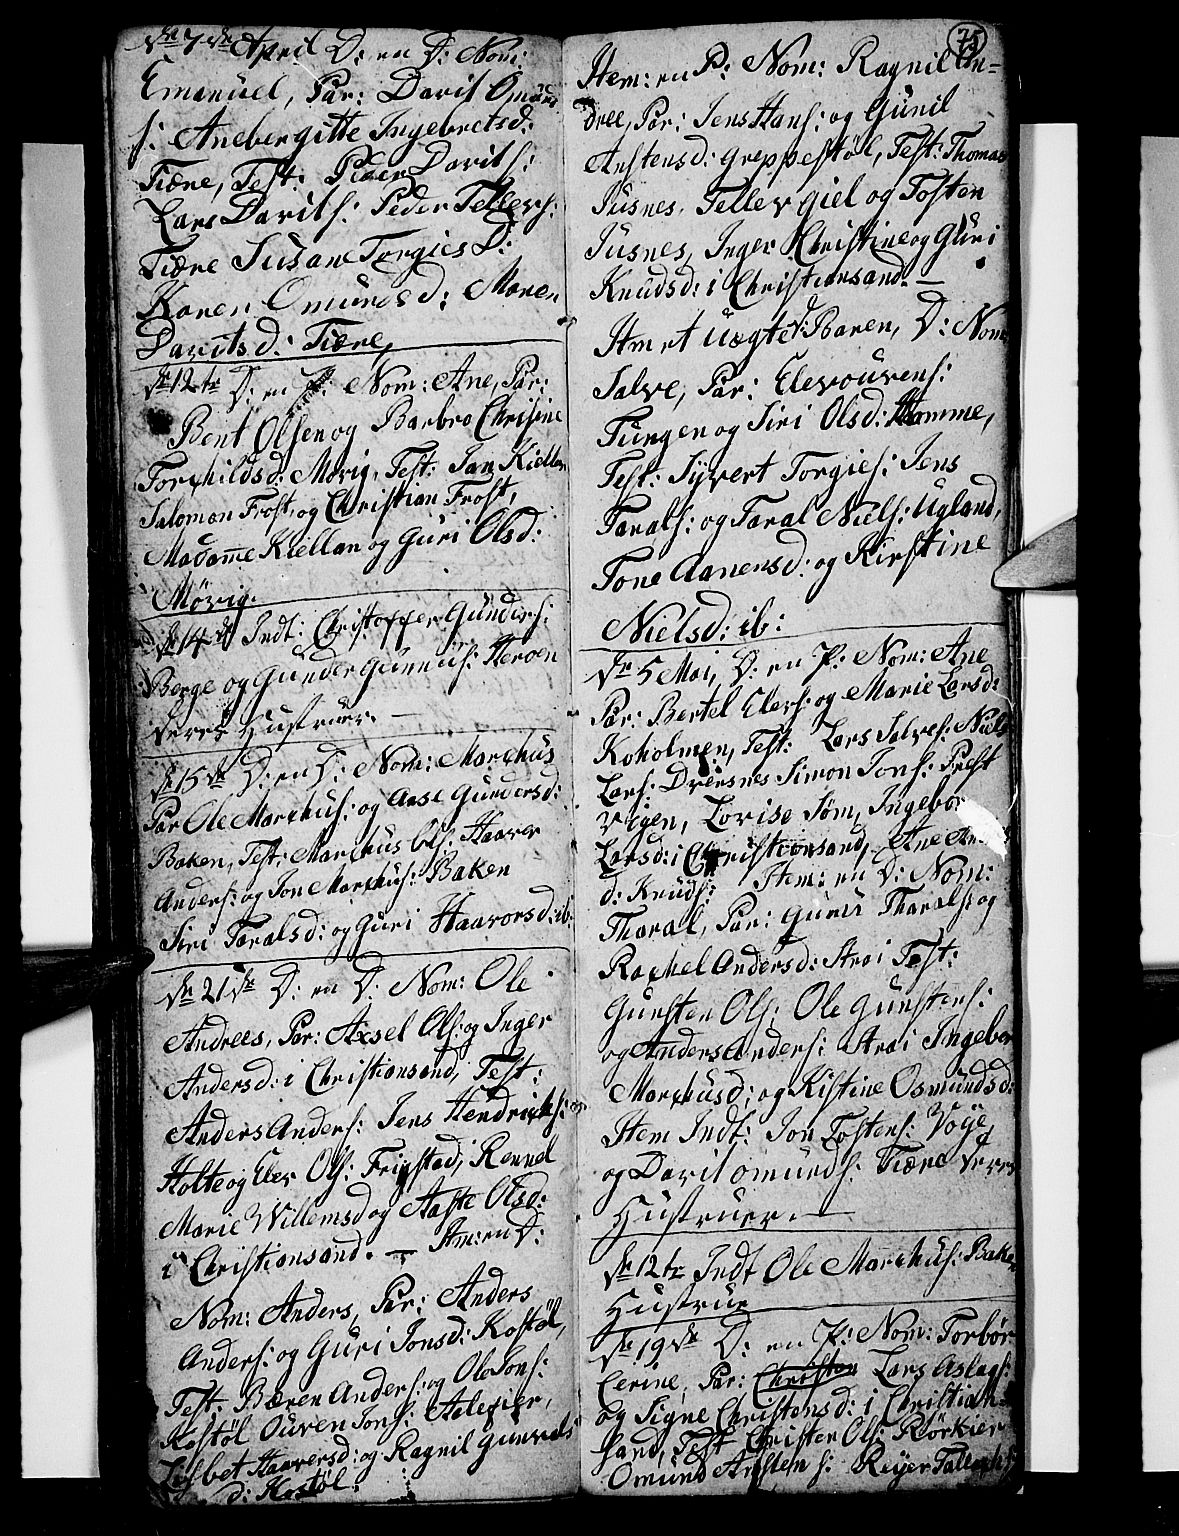 dn 7de April D: en D: Nom:
Emanuel, Par: Davit Omunds
s: Anebergitte Ingebretsd:
Tiære, Test: Peder Davits:
Lars Davits: Peder Tellevs:
Tiære Susane Torgies D:
Karen Omunds d: Maren
Davitsd: Tiære,
dn 12te D: en P: Nom: Ane, Par:
Bent Olsen og Barbro Chrisine
Torkildsd: Mørig, Test: Jan Kiellan
Salomon Frost, og Christian Frost,
Madamme Kiellan og Guri Olsd:
Møvig.
dn 14de Indt: Christoffer Gunders:
Berge og Gunder Gunnus: Heroen
Verres Hustruer. —
dn 15de D: en D: Nom: Marchus
Par Ole Marchus: og Aase Gundersd:
Baken, Test: Marchus Ols: Haaver
Anders: og Jon Marchus: Baken
Siri Taralsd: og Guri Haavorsd: ib:
dn 21de D: en D: Nom: Ole
Andrees, Par: Axsel Ols: og Inger
Andersd: i Christiansand, Test:
Anders Anders: Jens Hendrichs:
Holte og Elev Ols: Frigstad, Rennel
Marie Willemsd og Aaste Olsd:
i Christiansand. — Itm: en D:
Nom: Anders, Par: Anders
Anders: og Guri Jonsd: Kostøl,
Test. Bæren Anders: og Ole Jons:
Kostøl Ouven Jons: Aalefier,
Lisbet Haaversd: og Ragnil Gunvalds
d: Kostøl.
75
Item: en P: Nom: Ragnil An-
dree, Par: Jens Hans: og Gunil
Anstensd: Greppestøl, Test: Thomas
Jusnes, Tellev Giel og Tosten
Jusnes, Inger Christine og Guri
Knudsd: i Christiansand. —
Itm et Uægte Baren, D: Nom
Salve, Par: Elevouvens:
Tungen og Siri Olsd: Homme,
Test: Syvert Torgies: Jens
Tarals: og Taral Niels: Ugland,
Tone Aanensd: og Kirstine
Nielsd: ib:
dn 5 Mai, D: en P: Nom: Ane
Par: Bertel Elevs: og Marie Larsd:
Koholmen, Test: Lars Salves: Niels
Lars: Dversnes Simon Jons: Prest
vigen, Lovise Søm, Ingebor
Larsd: i Christiansand, Ane An
d: Knuds: Item: en D: Nom:
Tharal, Par: Guner Tharals: og
Rachel Andersd: Strai Test:
Gunsten Ols: Ole Gunstens:
og Anders Anders: Strai Ingebor
Marchusd: og Kistine Osmundsd:
Item Indt: Jon Tostens: Voje,
og Davit Omunds: Tiære Verres
Hustruer. —
dn 12te Indt Ole Marchus: Baken
Hustrue
dn 19de D: en P: Nom: Torbør
Cerine, Par: Christen Lars Aslags:
og Signe Christensd: i Christian-
sand, Test Christen Ols: Rørkier
Omund Anstens: Reyer Tallachs: